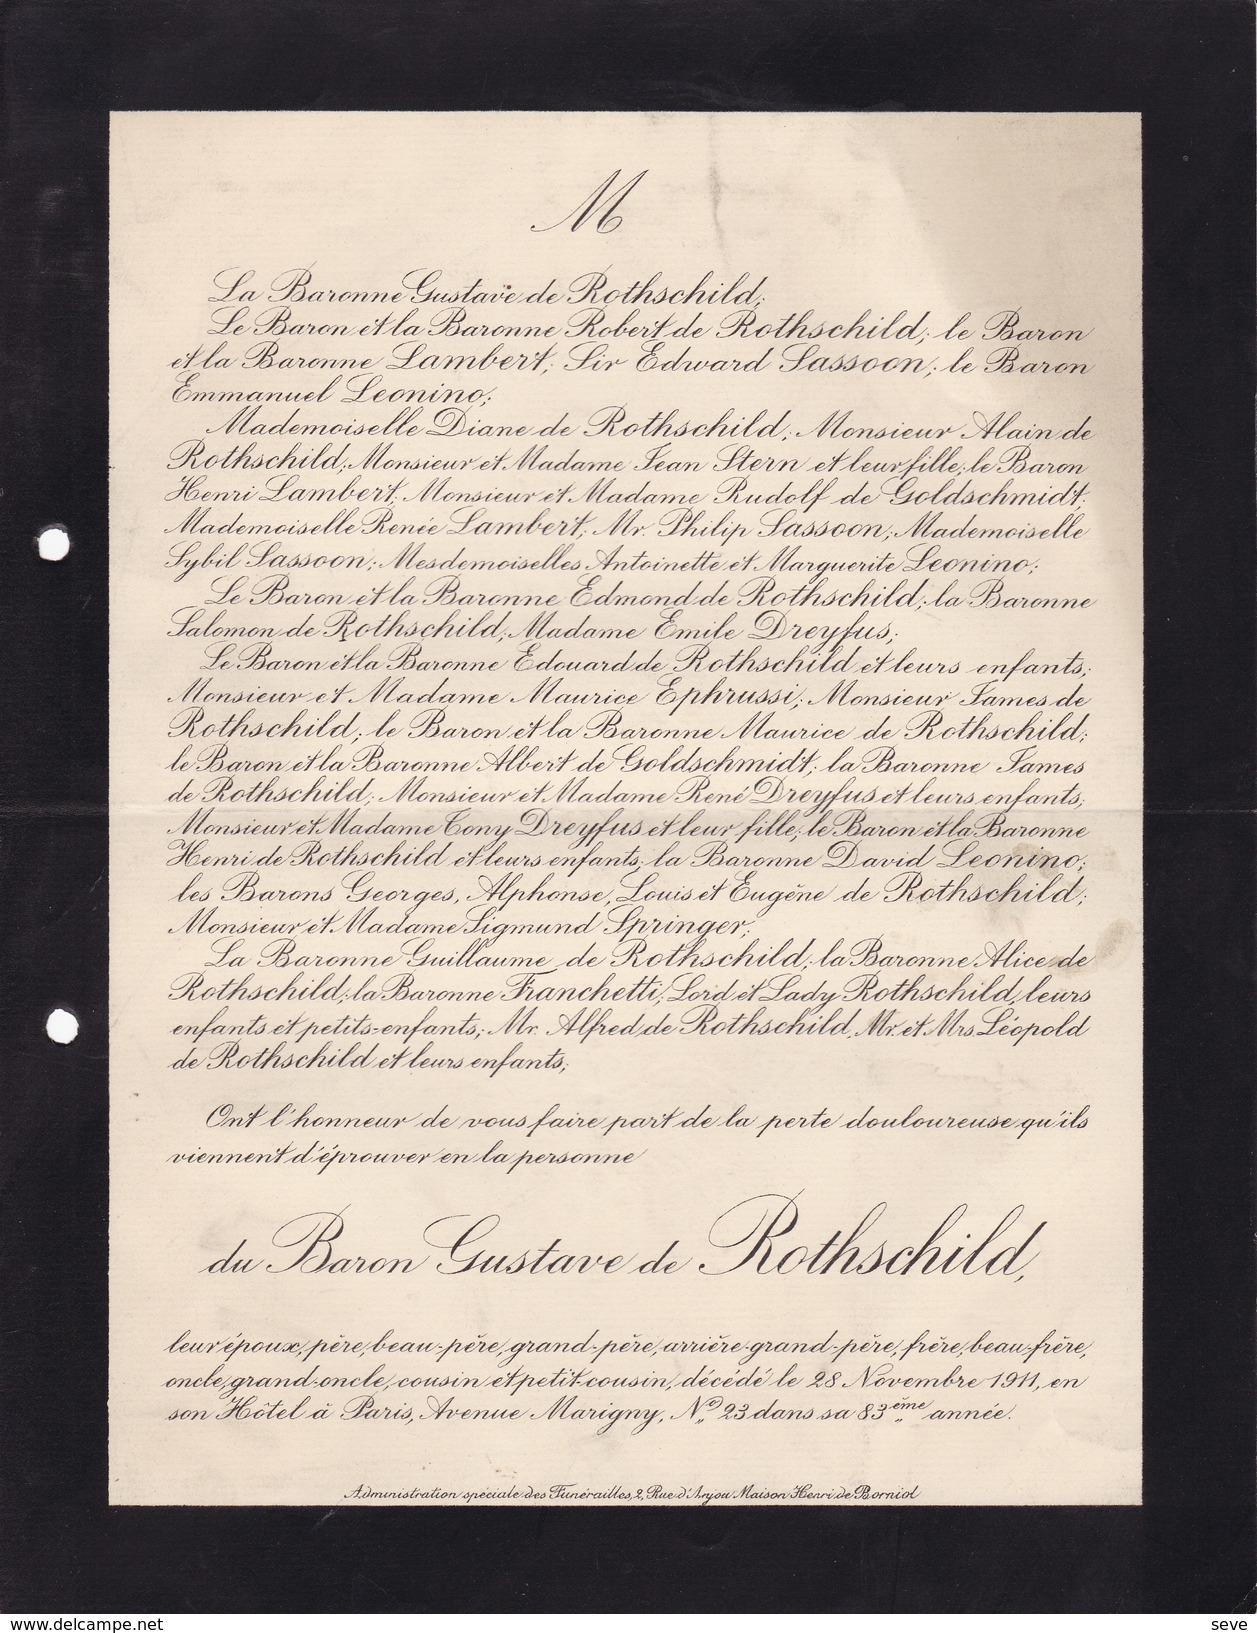 M
La Baronne Gustave de Rothschild;
Le Baron et la Baronne Robert de Rothschild; le Baron
et la Baronne Lambert; Sir Edward Sassoon; le Baron
Emmanuel Leonino;
Mademoiselle Diane de Rothschild; Monsieur Alain de
Rothschild; Monsieur et Madame Jean Stern et leur fille; le Baron
Henri Lambert; Monsieur et Madame Rudolf de Goldschmidt;
Mademoiselle Renée Lambert; Mr. Philip Sassoon; Mademoiselle
Sybil Sassoon; Mesdemoiselles Antoinette et Marguerite Leonino;
Le Baron et la Baronne Edmond de Rothschild; la Baronne
Salomon de Rothschild; Madame Emile Dreyfus;
Le Baron et la Baronne Edouard de Rothschild et leurs enfants;
Monsieur et Madame Maurice Ephrussi; Monsieur James de
Rothschild; le Baron et la Baronne Maurice de Rothschild;
le Baron et la Baronne Albert de Goldschmidt; la Baronne James
de Rothschild; Monsieur et Madame René Dreyfus et leurs enfants;
Monsieur et Madame Tony Dreyfus et leur fille; le Baron et la Baronne
Henri de Rothschild et leurs enfants; la Baronne David Leonino;
les Barons Georges, Alphonse, Louis et Eugène de Rothschild;
Monsieur et Madame Sigmund Springer;
La Baronne Guillaume de Rothschild; la Baronne Alice de
Rothschild; la Baronne Franchetti; Lord et Lady Rothschild, leurs
enfants et petits-enfants; Mr. Alfred de Rothschild, Mr. et Mrs Léopold
de Rothschild et leurs enfants;
Ont l'honneur de vous faire part de la perte douloureuse qu'ils
viennent d'éprouver en la personne
du Baron Gustave de Rothschild,
leur époux, père, beau-père, grand-père, arrière-grand-père, frère, beau-frère,
oncle, grand-oncle, cousin et petit-cousin, décédé le 28 Novembre 1911, en
son Hôtel à Paris, Avenue Marigny, No 23 dans sa 83ème année.
Administration spéciale des Funérailles, 2, Rue d'Anjou Maison Henri de Borniol
www.delcampe.net
seve